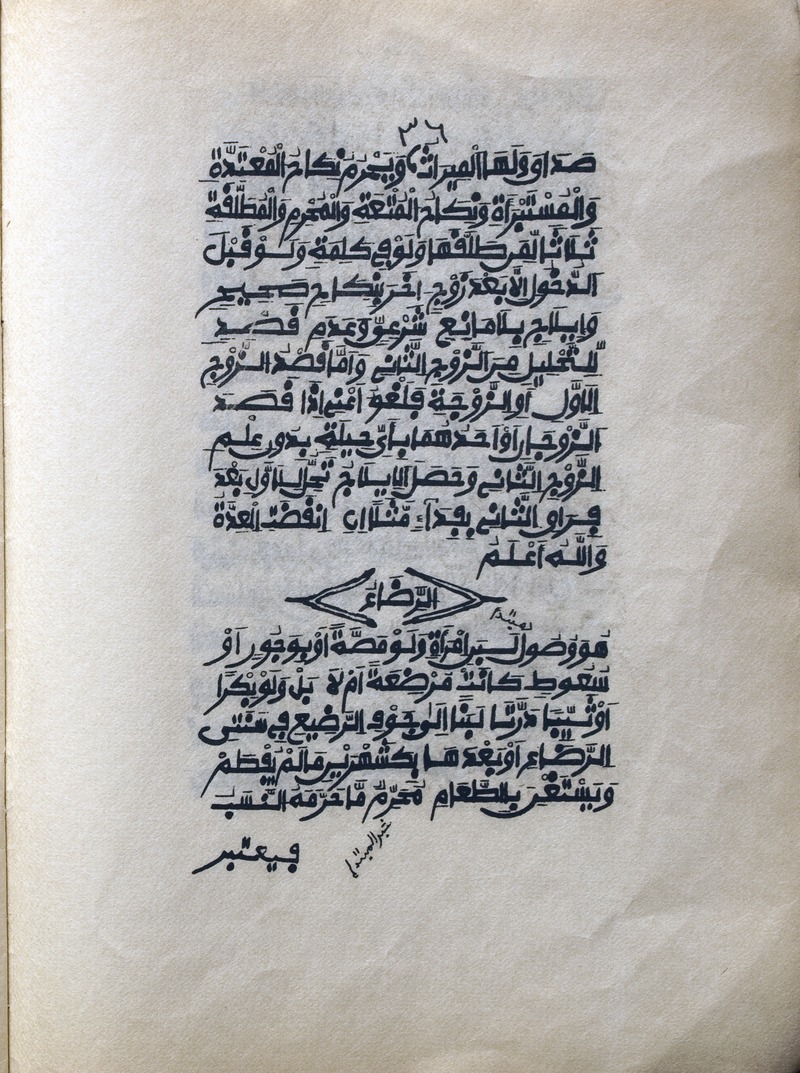 ٣٦
صداق ولها الميراث ويحرم نكاح المعتدّة
والمستبرأة ونكاح المتعة والمحرم والمطلّقة
ثلاثا لمن طلّقها ولو في كلمة ولو قبل
الدّخول إلّا بعد زوج اخر بنكاح صحيح
وايلاج بلا مانع شرعيّ وعدم قصد
للتّحليل من الزّوج الثّاني وأمّا قصد الزّوج
الاوّل أو الزّوجة فلغو اعني إذا قصد
الزّوجان أو احدهما بأيّ حيلة بدون علم
الزّوج الثّاني وحصل الايلاج تحلّ للاوّل بعد
فراق الثّاني بفداء مثلا ان انقضت العدّة
والله أعلم
الرّضاع
مبتدا
هو وصول لبن امرأة ولو مصّة أو بوجور أو
سعوط كانت مرضعة أم لا بل ولو بكرا
أو ثيّبا درّتا لبنا الى جوف الرّضيع في سنتى
الرّضاع أو بعدها بكشهرين ما لم يفطم
ويستغن بالطّعام محرّم ما حرّمه النّسب
خبر المبتدا
فيعتبر